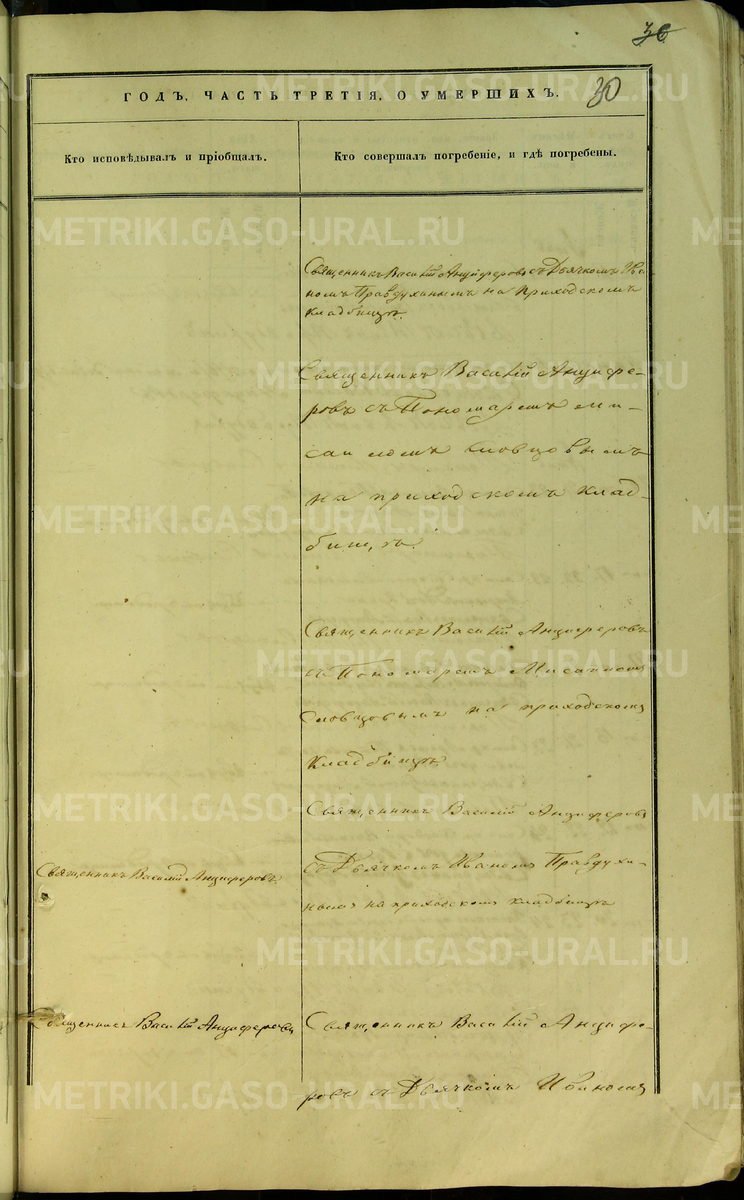 36
30
ГОДЪ, ЧАСТЬ ТРЕТІЯ, О УМЕРШИХЪ.
Кто исповѣдывалъ и пріобщалъ.
Кто совершалъ погребеніе, и гдѣ погребены.
Священникъ Василій Анциферовъ съ Дьячкомъ Ива-
номъ Правдухинымъ на приходскомъ
кладбищѣ.
Священникъ Василій Анцифе-
ровъ съ Пономаремъ Ми-
саиломъ Словцовымъ
на приходскомъ клад-
бищѣ.
Священникъ Василій Анциферовъ
съ Пономаремъ Мисаиломъ
Словцовымъ на приходскомъ
кладбищѣ
Священникъ Василій Анциферовъ
съ Дьячкомъ Иваномъ Правдухи-
нымъ на приходскомъ кладбищѣ
Священникъ Василій Анциферовъ.
Священникъ Василій Анциферовъ
Священникъ Василій Анцифе-
ровъ съ Дьячкомъ Иваномъ
METRIKI.GASO-URAL.RU